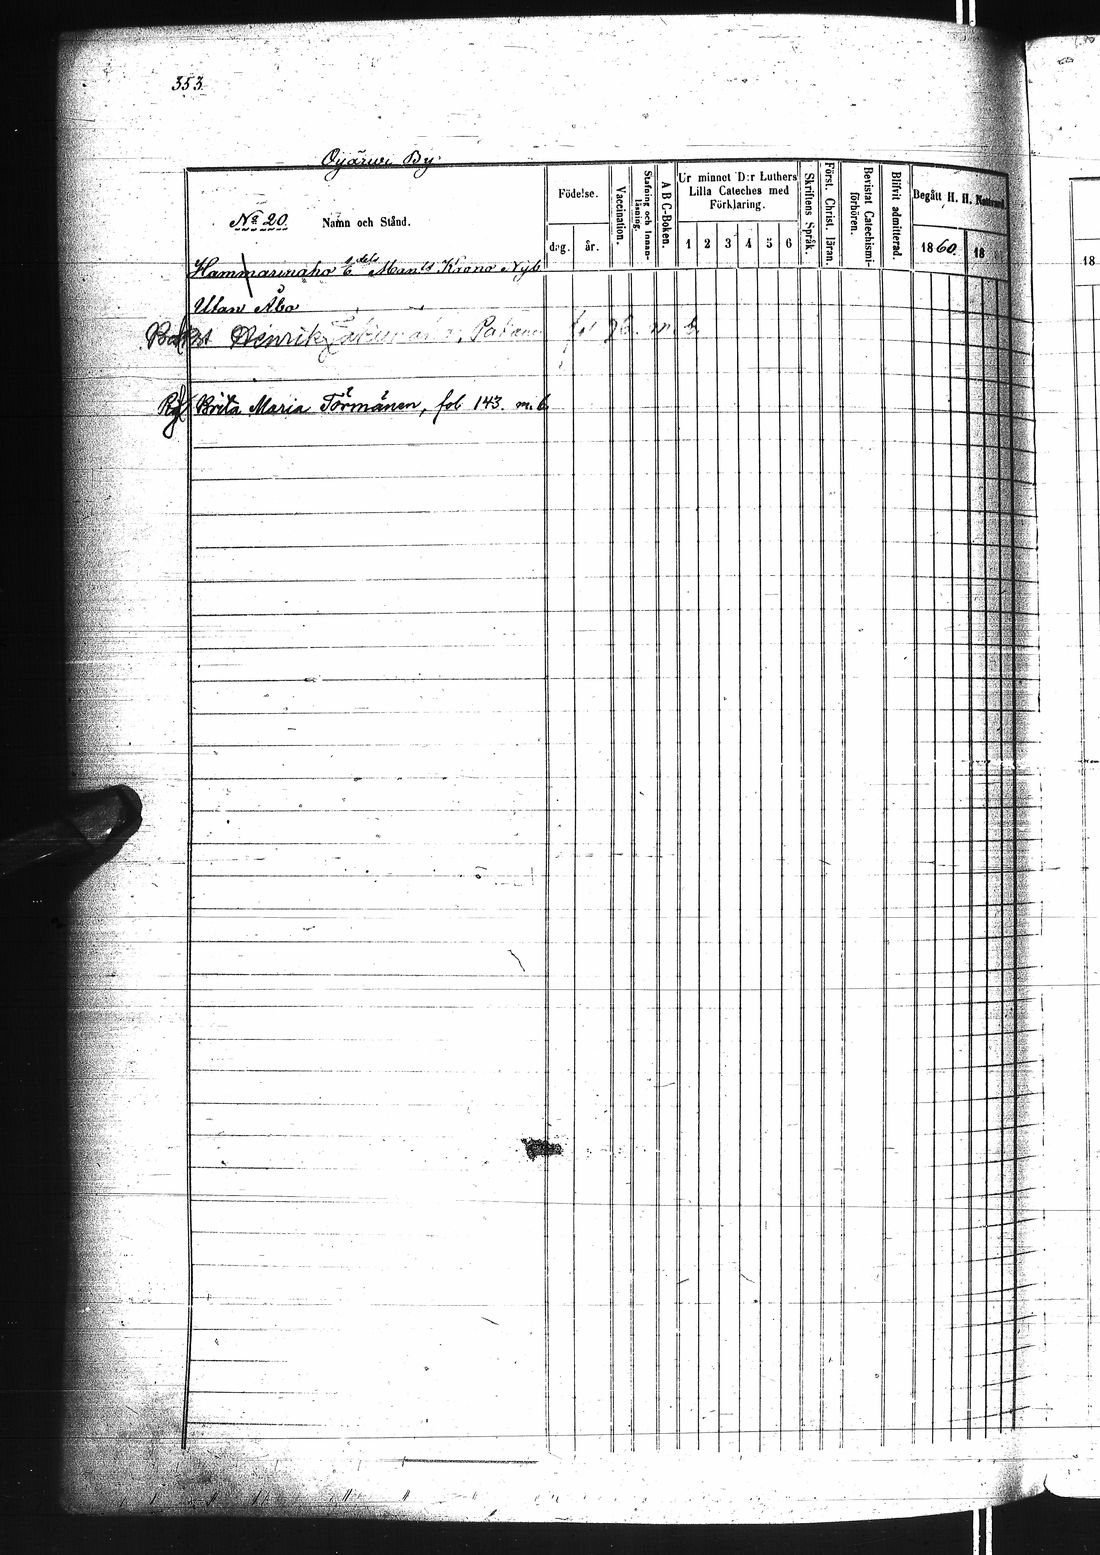 353.
Oijärwi By.
No 20. Namn och Stånd.
Födelse.
dag. år.
Vaccination.
Stafning och Innanläsning.
A B C-Boken.
Ur minnet D:r Luthers Lilla Cateches med Förklaring.
1 2 3 4 5 6
Skriftens Språk.
Först. Christ. läran.
Bevistat Catechismiförhören.
Blifvit admitterad.
Begått H. H. Nattvard.
1860. 18
18
Mantls Krono Nyb
Utan Åbo
Henrik m. b.
Brita Maria Törmänen, fol 143. m. b